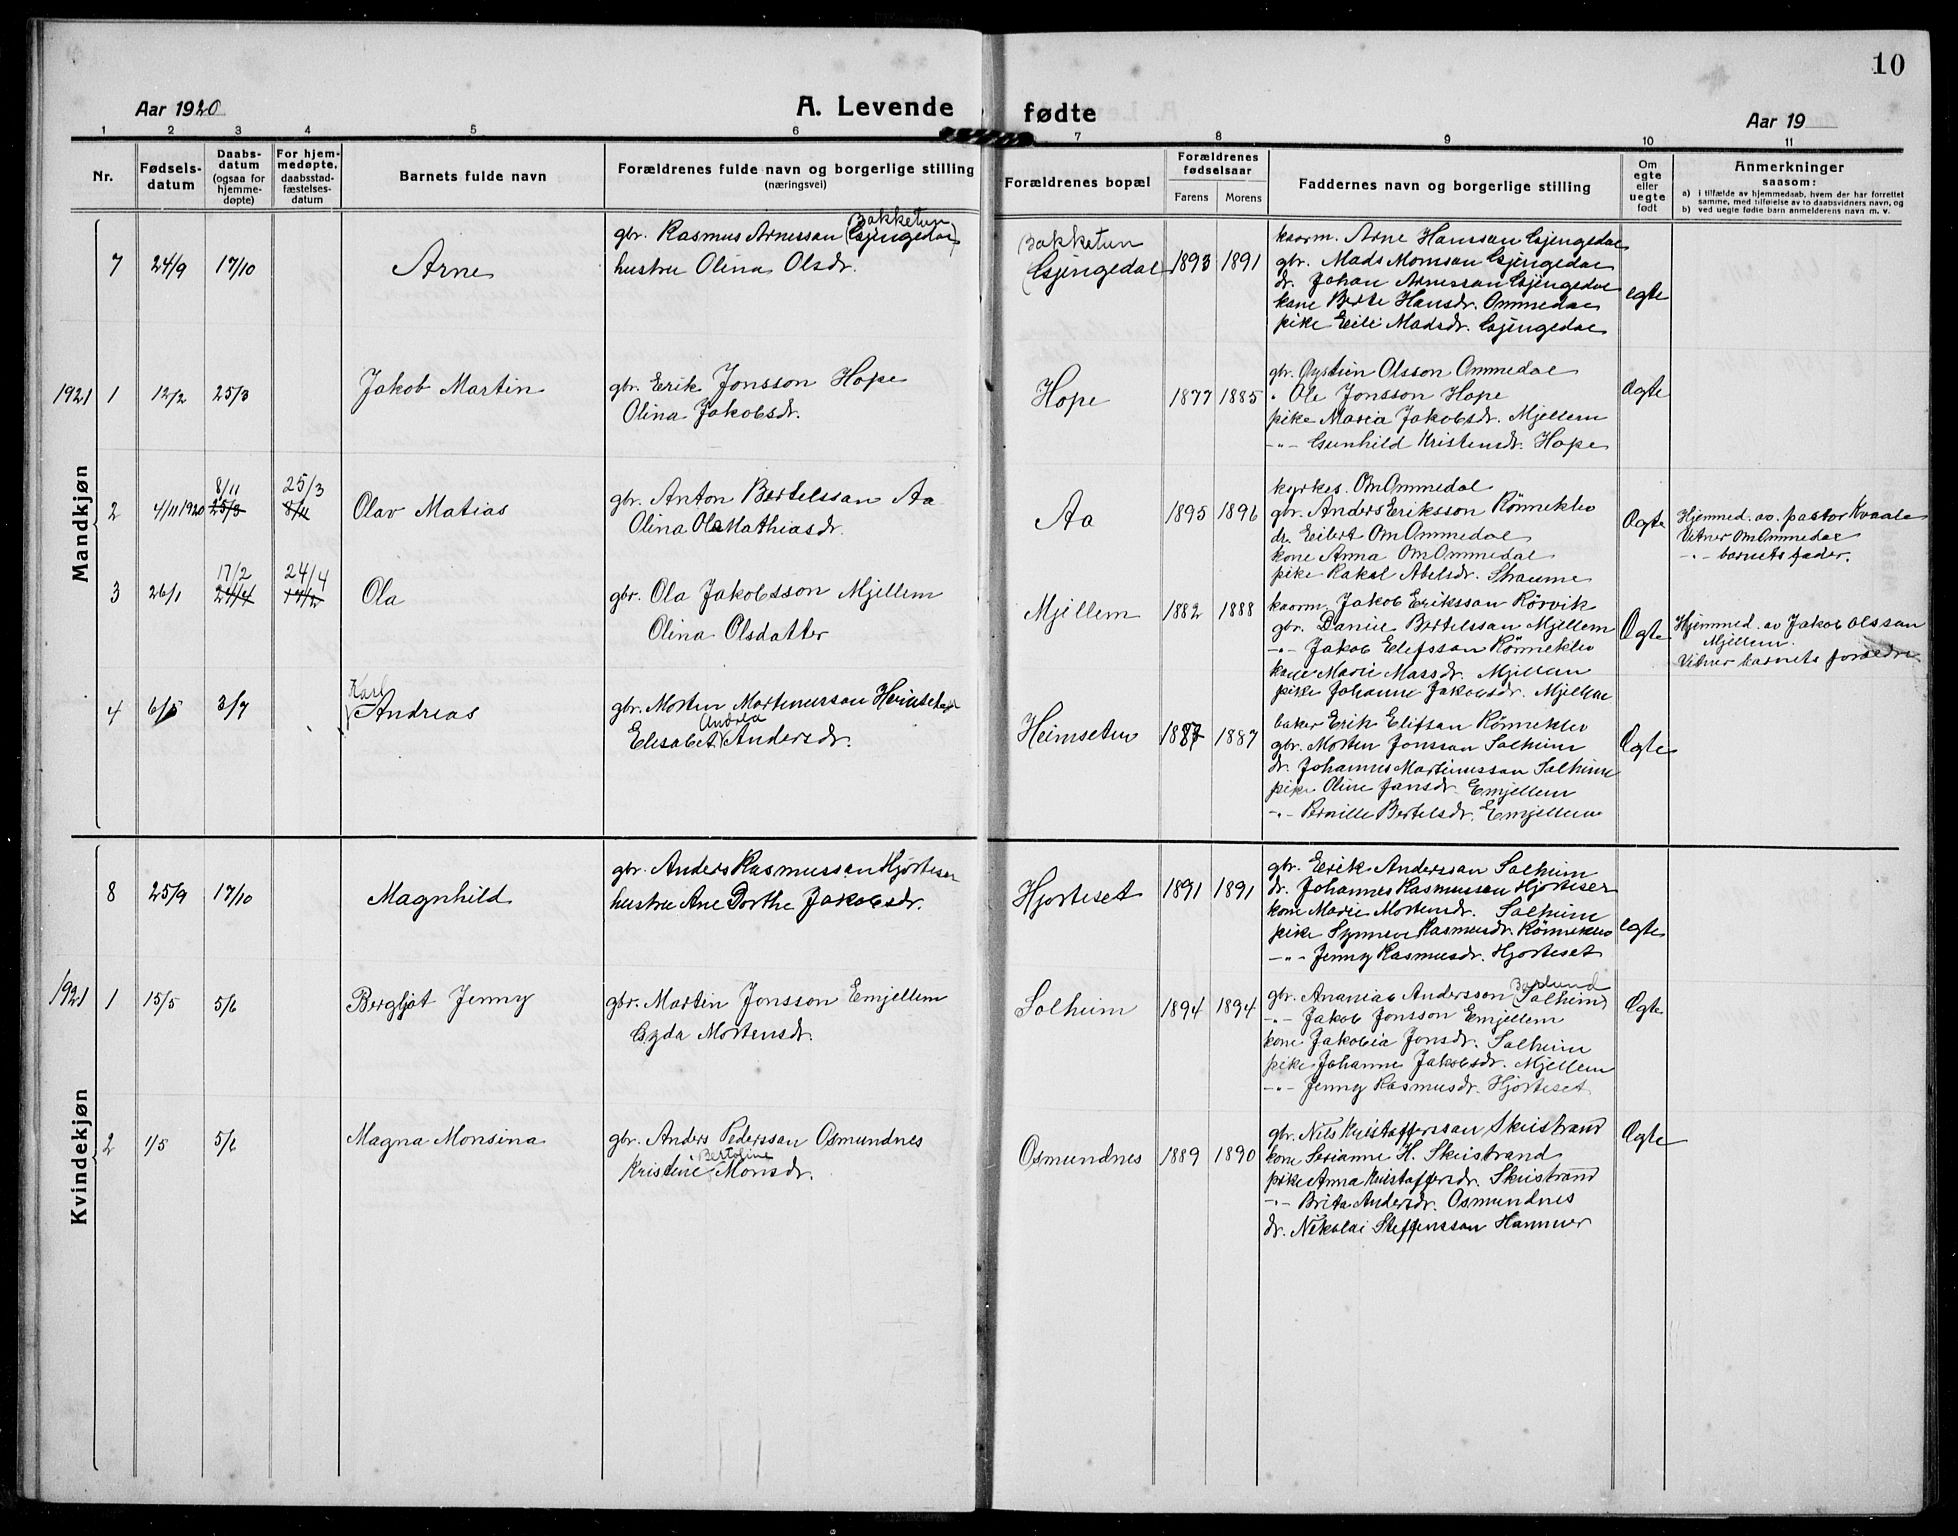 10
Aar 1920
A. Levende fødte
Aar 19
1 2 3 4 5 6 7 8 9 10 11
Nr.
Fødsels-
datum
Daabs-
datum
(ogsaa for
hjemme-
døpte)
For hjem-
medøpte,
daabsstad-
fæstelses-
datum
Barnets fulde navn
Forældrenes fulde navn og borgerlige stilling
(næringsvei)
Forældrenes bopæl
Forældrenes
fødselsaar
Farens Morens
Faddernes navn og borgerlige stilling
Om
egte
eller
uegte
født
Anmerkninger
saasom:
a) i tilfælde av hjemmedaab, hvem der har forrettet
samme, med tilføielse av to daabsvidners navn, og
b) ved uegte fødte barn anmelderens navn m. v.
Mandkjøn
7 24/9 17/10 Arne
Bakketun
gbr. Rasmus Arnessan (Gjengedal)
hustru Olina Olsdr.
Bakketun
(Gjengedal 1893 1891
kaarm. Arne Hanssan Gjengedal
gbr. Mads Monsan Gjengedal
dr. Johan Arnessan Gjengedal
kone Berte Hansdr. Ommedal
pike Eili Madsdr. Gjengedal
egte
1921 1 12/2 25/3 Jakob Martin
gbr. Erik Jonsson Hope
Olina Jakobsdr.
Hope 1877 1885
gbr. Øystein Olsson Ommedal
" Ole Jonsson Hope
pike Maria Jakobsdr. Mjellem
-"- Gunhild Kristensdr. Hope
Ægte
2 4/11 1920 8/11 25/3 25/3 8/11 Olav Matias
gbr. Anton Bertelssan Aa
Olina Ola Mathiasdr.
Aa 1895 1896
kyrkes. Om Ommedal
gbr. Anders Eriksson Rönneklev
dr. Eilert Om Ommedal
kone Anna Om Ommedal
pike Rakel Abelsdr. Straume
Ægte
Hjemmed. av. pastor Kvaale
Vitner Om Ommedal
-"- barnets fader.
3 26/1 17/2 24/4 24/4 17/2 Ola
gbr. Ola Jakobsson Mjellem
Olina Olsdatter
Mjellem 1882 1888
kaarm. Jakob Eriksson Rörvik
gbr. Daniel Bertelssan Mjellem
-"- Jakob Elefssan Rönneklev
kone Marie Massdr. Mjellem
pike Johanne Jakobsdr. Mjellem
Ægte
Hjemmed. av Jakob Olssan
Mjellem.
Vitner barnets forældre
4 6/5 3/7
Karl
Andreas
gbr. Morten Martinussan Heimseten
Andrea
Elisabet Andersdr.
Heimseten 1887 1887
baker Erik Elifsan Rönneklev
gbr. Morten Jonssan Solheim
dr. Johannes Martinussan Solheim
pike Oline Jansdr. Emjellem
-"- Pernille Bertelsdr. Emjellem
Ægte
Kvindekjøn
8 25/9 17/10 Magnhild
gbr. Anders Rasmussan Hjorteset
hustru Ane Dorthe Jakobsdr.
Hjorteset 1891 1891
gbr. Eirik Anderssan Solheim
dr. Johannes Rasmussen Hjorteset
kone Marie Mortensdr. Solheim
pike Synneve Rasmusdr. Rönneklev
-"- Jenny Rasmusdr. Hjorteset
egte
1921 1 15/5 5/6 Bergljot Jenny
gbr. Martin Jonsson Emjellem
Gyda Mortensdr.
Solheim 1894 1894
gbr. Ananias Andersson Solheim
-"- Jakob Jonsson Emjellem
kone Jakobia Jonsdr. Solheim
pike Johanne Jakobsdr. Mjellem
-"- Jenny Rasmusdr. Hjorteset
Ægte
2 1/5 5/6 Magna Monsina
gbr. Anders Pederssan Osmundnes
Bertoline
Kristine Monsdr.
Osmundnes 1889 1890
gbr. Nils Kristofferssan Skeistrand
kone Serianne H. Skeistrand
pike Anna Kristoffersdr. Skeistrand
-"- Brita Andersdr. Osmundnes
dr. Nikolai Steffenssan Hammer
Ægte